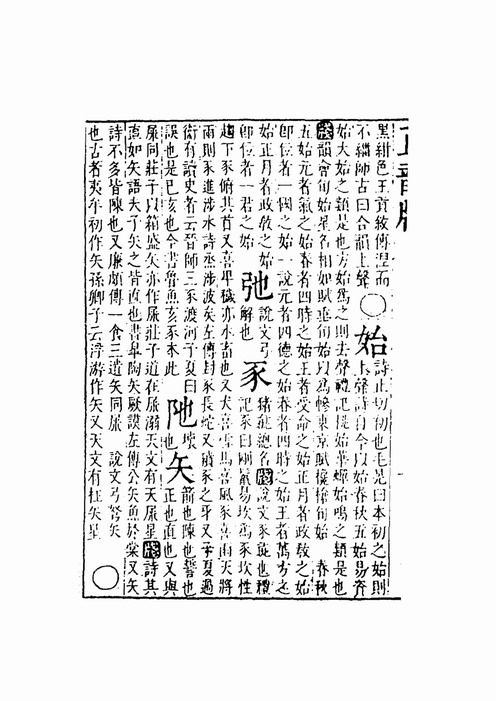 黑紺色王貢敘傳涅而
不緇師古曰合韻上聲
○始
詩止切初也毛晃曰本初之始則
上聲詩自今以始春秋五始易資
始大始之類是也方始爲之則去聲禮記桃始華蟬始鳴之類是也
牋韻會旬始星名相如賦垂旬始以爲幓東京賦欃槍旬始 春秋
五始元者氣之始春者四時之始王者受命之始正月者政教之始
即位者一國之始一說元者四德之始春者四時之始王者萬方之
始正月者政教之始
即位者一君之始
弛
說文弓
解也
豕
豬彘總名牋說文豕彘也禮
記豕曰剛鬣易坎爲豕坎性
趨下豕俯其首又喜卑穢亦水畜也又犬喜雪馬喜風豕喜雨天將
雨則豕進涉水詩烝涉波矣左傳封豕長蛇又豶豕之牙又夏過
衛有讀史者云晉師三豕渡河子夏曰
誤也是己亥也今書魯魚亥豕本此
阤
壞
也
矢
箭也陳也誓也
正也直也又與
屎同莊子以筐盛矢亦作屎莊子道在屎溺天文有天屎星牋詩其
直如矢語夫子矢之皆直也書皋陶矢厥謨左傳公矢魚於棠又矢
詩不多皆陳也又廉頗傳一食三遺矢同屎 說文弓弩矢
也古者夷牟初作矢孫卿子云浮游作矢又天文有枉矢星
○